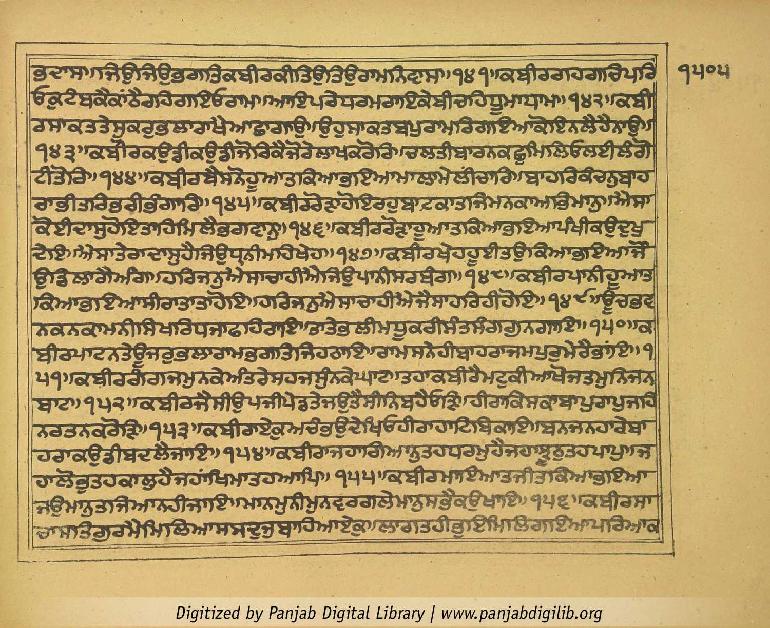 ਭਦਾਸ॥ਜਿਉਜਿਉਭਗਤਿਕਬੀਰਕੀਤਿਉਤਿਉਰਾਮਨਿਵਾਸ॥੧੪੧॥ਕਬੀਰਗਹਗਚਿਪਰਿ
੧੫੦੫
ਓਕੁਟੰਬਕੈਕਾਂਠੈਰਹਿਗਇਓਰਾਮ॥ਆਇਪਰੇਧਰਮਰਾਇਕੇਬੀਚਹਿਧੂਮਾਧਾਮ॥੧੪੨॥ਕਬੀ
ਰਸਾਕਤਤੇਸੂਕਰਭਲਾਰਾਖੈਆਛਾਗਾਉ॥ਉਹੁਸਾਕਤਬਪੁਰਾਮਰਿਗਇਆਕੋਇਨਲੈਹੈਨਾਉ॥
੧੪੩॥ਕਬੀਰਕਉਡੀਕਉਡੀਜੋਰਿਕੈਜੋਰੇਲਾਖਕਰੋਰਿ॥ਚਲਤੀਬਾਰਨਕਛੁਮਿਲਿਓਲਈਲੰਗੋ
ਟੀਤੋਰਿ॥੧੪੪॥ਕਬੀਰਬੈਸਨੋਹੂਆਤਕਿਆਭਇਆਮਾਲਾਮੇਲੀਚਾਰਿ॥ਬਾਹਰਿਕੰਚਨੁਬਾਹ
ਰਾਭੀਤਰਿਭਰੀਭੰਗਾਰਿ॥੧੪੫॥ਕਬੀਰਰੋੜਾਹੋਇਰਹੁਬਾਟਕਾਤਜਿਮਨਕਾਅਭਿਮਾਨੁ॥ਐਸਾ
ਕੋਈਦਾਸੁਹੋਇਤਾਹਿਮਿਲੈਭਗਵਾਨੁ॥੧੪੬॥ਕਬੀਰਰੋੜਾਹੂਆਤਕਿਆਭਇਆਪੰਥੀਕਉਦੁਖੁ
ਦੇਇ॥ਐਸਾਤੇਰਾਦਾਸੁਹੈਜਿਉਧਰਨੀਮਹਿਖੇਹ॥੧੪੭॥ਕਬੀਰਖੇਹਹੂਈਤਉਕਿਆਭਇਆਜੌ
ਉਡਿਲਾਗੈਅੰਗ॥ਹਰਿਜਨੁਐਸਾਚਾਹੀਐਜਿਉਪਾਨੀਸਰਬੰਗ॥੧੪੮॥ਕਬੀਰਪਾਨੀਹੂਆਤ
ਕਿਆਭਇਆਸੀਰਾਤਾਤਾਹੋਇ॥ਹਰਿਜਨੁਐਸਾਚਾਹੀਐਜੈਸਾਹਰਿਹੀਹੋਇ॥੧੪੯॥ਊਚਭਵ
ਨਕਨਕਾਮਨੀਸਿਖਰਿਧਜਾਫਹਰਾਇ॥ਤਾਤੇਭਲੀਮਧੂਕਰੀਸੰਤਸੰਗਗੁਨਗਾਇ॥੧੫੦॥ਕ
ਬੀਰਪਾਟਨਤੇਊਜਰੁਭਲਾਰਾਮਭਗਤਿਜਿਹਠਾਇ॥ਰਾਮਸਨੇਹੀਬਾਹਰਾਜਮਪੁਰੁਮੇਰੇਭਾਂਇ॥੧
੫੧॥ਕਬੀਰਗੰਗਜਮੁਨਕੇਅੰਤਰੇਸਹਜਸੁੰਨਕੇਘਾਟ॥ਤਹਾਕਬੀਰੈਮਟੁਕੀਆਖੋਜਤਮੁਨਿਜਨ
ਬਾਟ॥੧੫੨॥ਕਬੀਰਜੈਸੀਉਪਜੀਪੇਡਤੇਜਉਤੈਸੀਨਿਬਹੈਓੜਿ॥ਹੀਰਾਕਿਸਕਾਬਾਪੁਰਾਪੁਜਹਿ
ਨਰਤਨਕਰੋੜਿ॥੧੫੩॥ਕਬੀਰਾਏਕੁਅਚੰਭਉਦੇਖਿਓਹੀਰਾਹਾਟਿਬਿਕਾਇ॥ਬਨਜਨਹਾਰੇਬਾ
ਹਰਾਕਉਡੀਬਦਲੈਜਾਇ॥੧੫੪॥ਕਬੀਰਾਜਹਾਗਿਆਨੁਤਹਧਰਮੁਹੈਜਹਾਝੂਠੁਤਹਪਾਪੁ॥ਜ
ਹਾਲੋਭੁਤਹਕਾਲੁਹੈਜਹਾਖਿਮਾਤਹਆਪਿ॥੧੫੫॥ਕਬੀਰਮਾਇਆਤਜੀਤਕਿਆਭਇਆ
ਜਉਮਾਨੁਤਜਿਆਨਹੀਜਾਇ॥ਮਾਨਮੁਨੀਮੁਨਿਵਰਗਲੇਮਾਨੁਸਭੈਕਉਖਾਇ॥੧੫੬॥ਕਬੀਰਸਾ
ਚਾਸਤਿਗੁਰਮੈਮਿਲਿਆਸਬਦੁਜੁਬਾਹਿਆਏਕੁ॥ਲਾਗਤਹੀਭੁਇਮਿਲਿਗਇਆਪਰਿਆਕ
Digitized by Panjab Digital Library | www.panjabdigilib.org